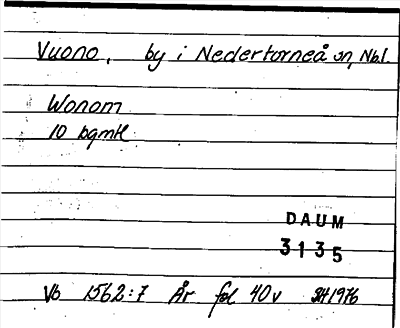 Vuono, by i Nedertorneå sn, Nbl.
Wonom
10 bqmtl
DAUM
3135
Vb 1562:7 År fol 40v SH 1976